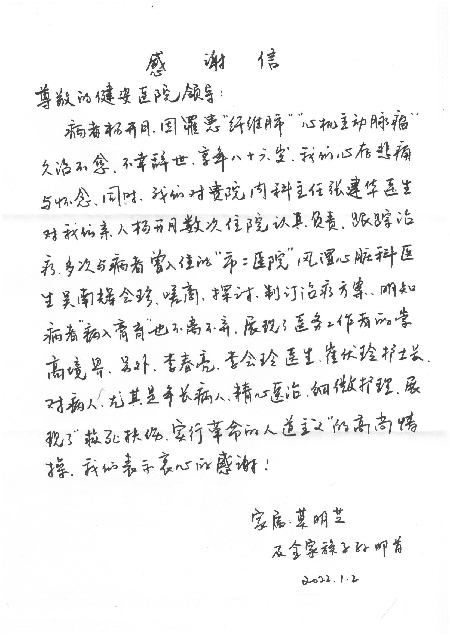 感谢信
尊敬的健安医院领导：
病者杨开月，因罹患“纤维肺”“心机主动脉瘤”
久治不愈，不幸辞世，享年八十六岁，我们心存悲痛
与怀念，同时，我们对贵院内科主任张建华医生
对我们亲人杨开月数次住院认真负责，跟踪治
疗，多次与病者曾入住的“市二医院”风湿心脏科医
生吴南 会珍、磋商、探讨、制订治疗方案、明知
病者“病入膏肓”也不离不弃，展现了医务工作者的崇
高境界，另外，李春亮，李会玲医生，崔伏玲护士长，
对病人，尤其是年长病人，精心医治、细微护理，展
现了“救死扶伤，实行革命的人道主义”的高尚情
操，我们表示衷心的感谢！
家属：莫明芝
及全家族子孙叩首
2022.1.2